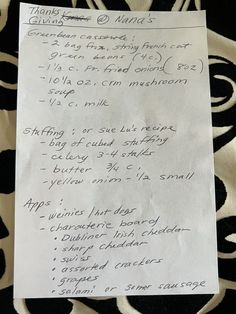 Thanks
Giving @ Nana's
Greenbean casserole:
- 2 bag froz. string french cut
green beans (4c)
- 1 1/3 c. Fr. fried onions (8oz)
- 10 1/2 oz. crm mushroom
soup
- 1/2 c. milk
Stuffing: or Sue Lu's recipe
- bag of cubed stuffing
- celery 3-4 stalks
- butter 3/4 c.
- yellow onion - 1/2 small
Apps:
- weinies / hot dogs
- charcuterie board
• Dubliner Irish cheddar
• sharp cheddar
• swiss
• assorted crackers
• grapes
• salami or sumer sausage